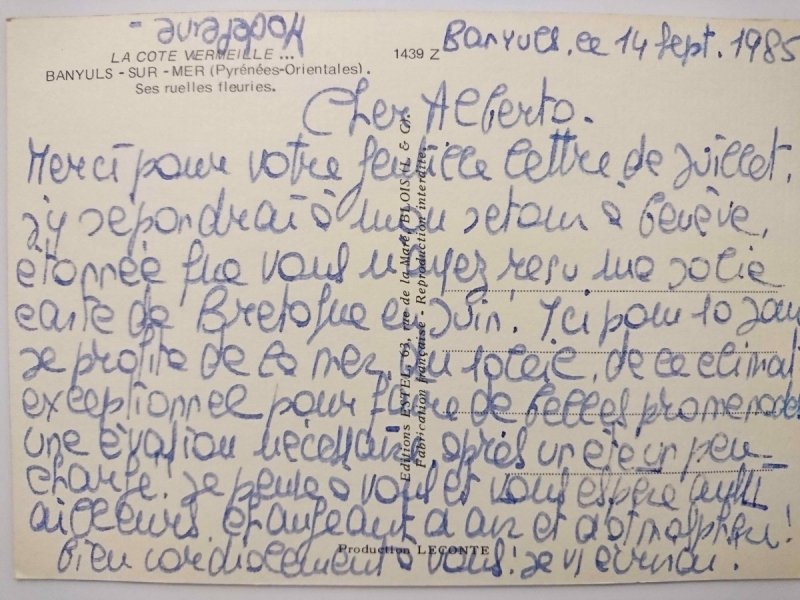 Madeleine -
LA COTE VERMEILLE ...
BANYULS - SUR - MER (Pyrénées-Orientales).
Ses ruelles fleuries.
1439 Z
Banyuls, ce 14 sept. 1985
Cher Alberto.
Merci pour votre gentille lettre de juillet,
j'y répondrai à mon retour à Genève,
étonnée que vous n'ayez reçu une jolie
carte de Bretagne en juin. Ici pour 10 jours
je profite de la mer, du soleil, de ce climat
exceptionnel pour faire de belles promenades
une évasion nécessaire, après un été un peu
chargé. Je pense à vous et vous espère aussi
ailleurs, changeant d'air et d'atmosphère!
Bien cordialement à vous!
Editions ESTEL, 63, rue de la Mare, BLOIS (L. & C).
Fabrication française - Reproduction interdite.
Production LECONTE